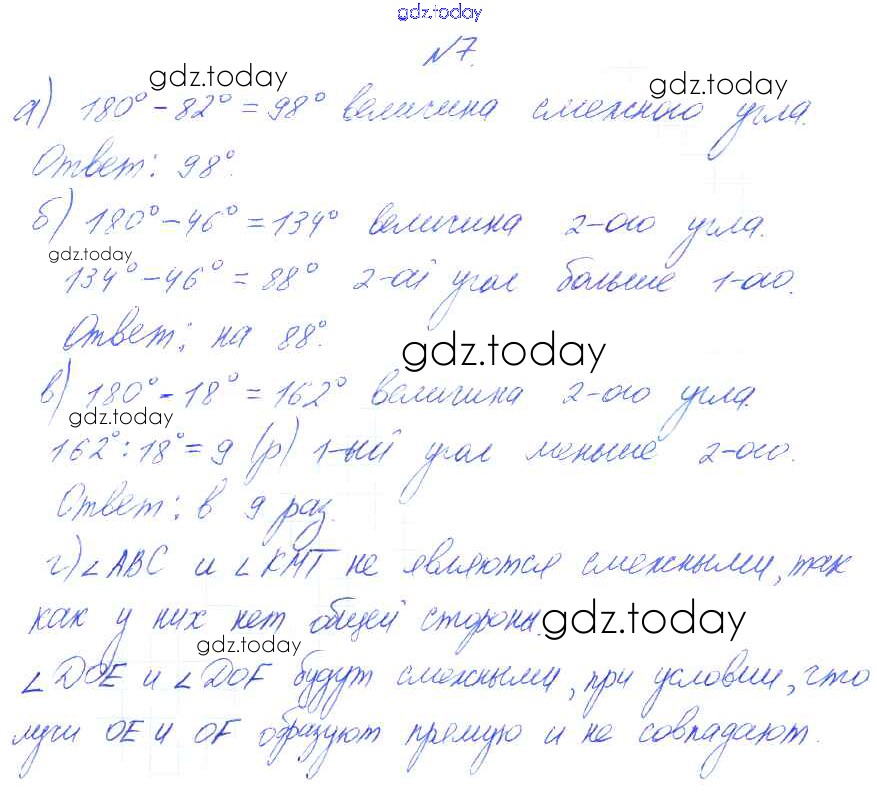 gdz.today
№7.
gdz.today gdz.today
а) 180° - 82° = 98° величина смежного угла.
Ответ: 98°.
б) 180° - 46° = 134° величина 2-ого угла.
gdz.today
134° - 46° = 88° 2-ой угол больше 1-ого.
Ответ: на 88°.
gdz.today
в) 180° - 18° = 162° величина 2-ого угла.
gdz.today
162° : 18° = 9 (р) 1-ый угол меньше 2-ого.
Ответ: в 9 раз.
г) ∠ABC и ∠KMT не являются смежными, так
как у них нет общей стороны.
gdz.today
gdz.today
∠DOE и ∠DOF будут смежными, при условии, что
лучи OE и OF образуют прямую и не совпадают.